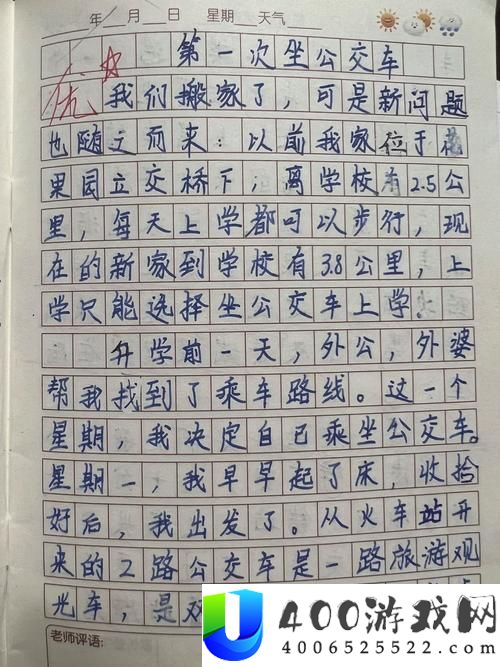 年 月 日 星期 天气
第一次坐公交车
优
我们搬家了，可是新问题
也随之而来：以前我家位于花
果园立交桥下，离学校有2.5公
里，每天上学都可以步行，现
在的新家到学校有3.8公里，上
学只能选择坐公交车上学。
升学前一天，外公，外婆
帮我找到了乘车路线。这一个
星期，我决定自己乘坐公交车。
星期一，我早早起了床，收拾
好后，我出发了。从火车站开
来的2路公交车是一路旅游观
光车，是双
老师评语:
400游戏网
4006525522.com